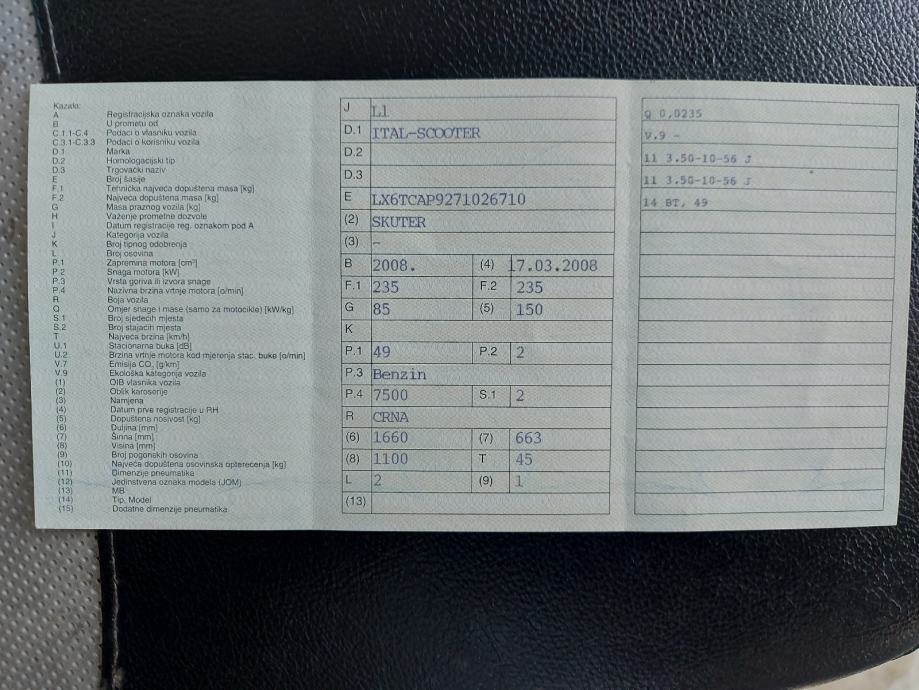 Kazalo:
A Registracijska oznaka vozila
B U prometu od
C.1.1-C.4 Podaci o vlasniku vozila
C.3.1-C.3.3 Podaci o korisniku vozila
D.1 Marka
D.2 Homologacijski tip
D.3 Trgovački naziv
E Broj šasije
F.1 Tehnička najveća dopuštena masa [kg]
F.2 Najveća dopuštena masa [kg]
G Masa praznog vozila [kg]
H Važenje prometne dozvole
I Datum registracije reg. oznakom pod A
J Kategorija vozila
K Broj tipnog odobrenja
L Broj osovina
P.1 Zapremina motora [cm³]
P.2 Snaga motora [kW]
P.3 Vrsta goriva ili izvora snage
P.4 Nazivna brzina vrtnje motora [o/min]
R Boja vozila
Q Omjer snage i mase (samo za motocikle) [kW/kg]
S.1 Broj sjedećih mjesta
S.2 Broj stajaćih mjesta
T Najveća brzina [km/h]
U.1 Stacionarna buka [dB]
U.2 Brzina vrtnje motora kod mjerenja stac. buke [o/min]
V.7 Emisija CO₂ [g/km]
V.9 Ekološka kategorija vozila
(1) OIB vlasnika vozila
(2) Oblik karoserije
(3) Namjena
(4) Datum prve registracije u RH
(5) Dopuštena nosivost [kg]
(6) Duljina [mm]
(7) Širina [mm]
(8) Visina [mm]
(9) Broj pogonskih osovina
(10) Najveća dopuštena osovinska opterećenja [kg]
(11) Dimenzije pneumatika
(12) Jedinstvena oznaka modela (JOM)
(13) MB
(14) Tip, Model
(15) Dodatne dimenzije pneumatika
J L1
D.1 ITAL-SCOOTER
D.2
D.3
E LX6TCAP9271026710
(2) SKUTER
(3) -
B 2008. (4) 17.03.2008
F.1 235 F.2 235
G 85 (5) 150
K
P.1 49 P.2 2
P.3 Benzin
P.4 7500 S.1 2
R CRNA
(6) 1660 (7) 663
(8) 1100 T 45
L 2 (9) 1
(13)
Q 0,0235
V.9 -
11 3.50-10-56 J
11 3.50-10-56 J
14 BT, 49